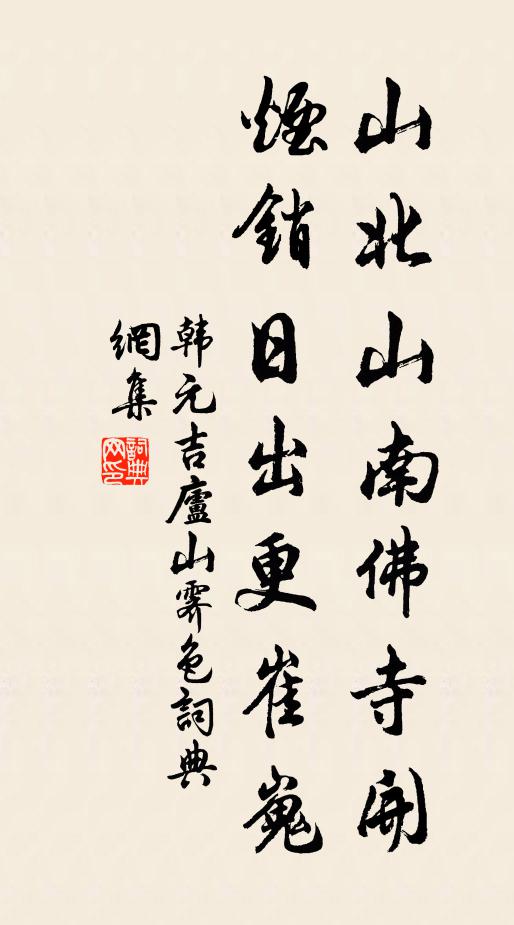 山北山南佛寺開
煙銷日出更崔嵬
韩元吉廬山霽色詞典
網集
詞典網印